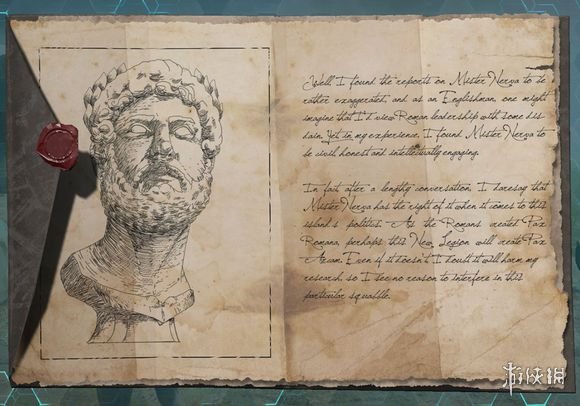 Well I found the reports on Mister Nerva to be
rather exaggerated, and as an Englishman, one might
imagine that I'd view Roman leadership with some dis-
dain. Yet in my experience, I found Mister Nerva to
be civil honest and intellectually engaging.
In fact after a lengthy conversation, I daresay that
Mister Nerva has the right of it when it comes to this
island's politics. As the Romans created Pax
Romana, perhaps this New Legion will create Pax
Arcum. Even if it doesn't, I doubt it will harm my
research, so I see no reason to interfere in this
particular squabble.
游侠网